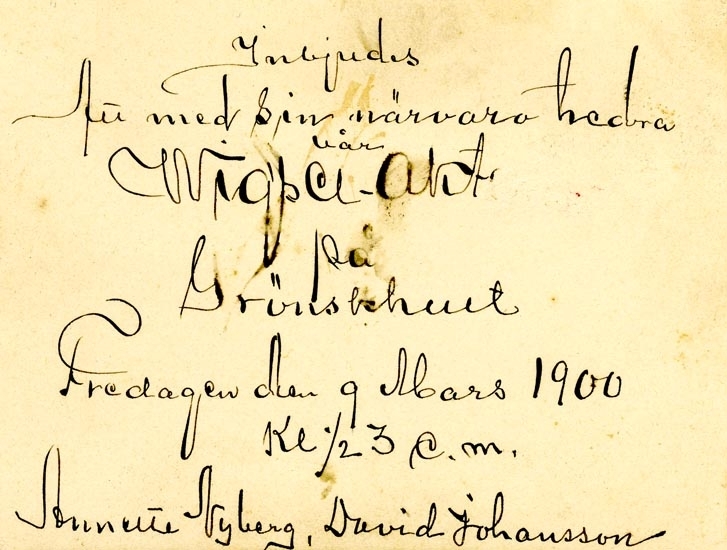 Inbjudes
Att med sin närvaro hedra
vår
Wigsel-Akt
på
Grönskhult
Fredagen den 9 Mars 1900
Kl 1/2 3 e.m.
Annette Nyberg, David Johansson